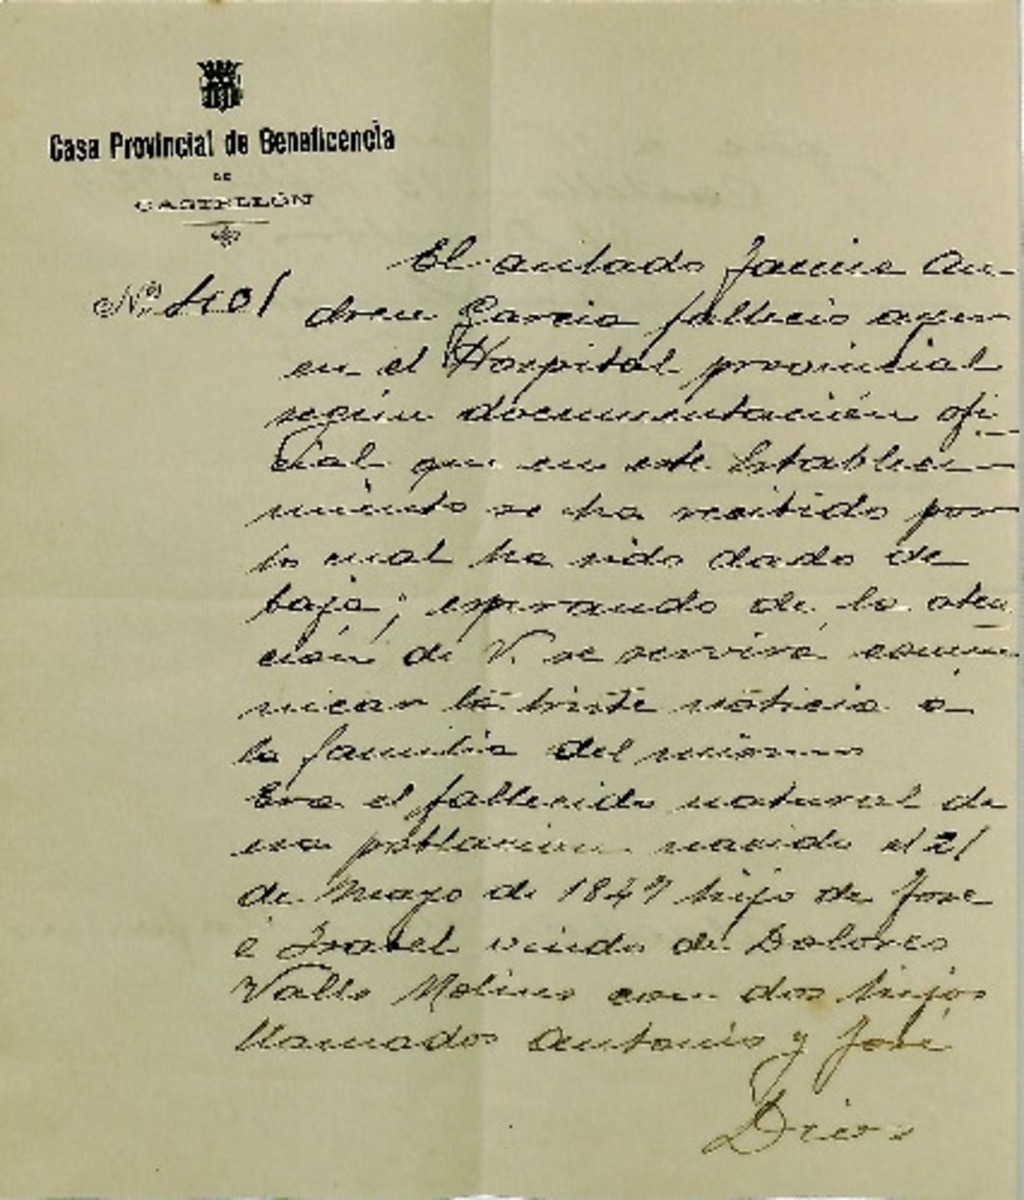 Casa Provincial de Beneficencia
DE
CASTELLÓN
Nº 401
El asilado Jaime An-
dreu Garcia falleció ayer
en el Hospital provincial
según documentación ofi-
cial que en este Estableci-
miento se ha recibido por
lo cual ha sido dado de
baja; esperando de la aten
ción de V. se servirá comu
nicar la triste noticia á
la familia del mismo
Era el fallecido natural de
esa poblacion nacido el 21
de Mayo de 1847 hijo de Jose
é Isabel viudo de Dolores
Valls Molino con dos hijos
llamados Antonio y José
Dios